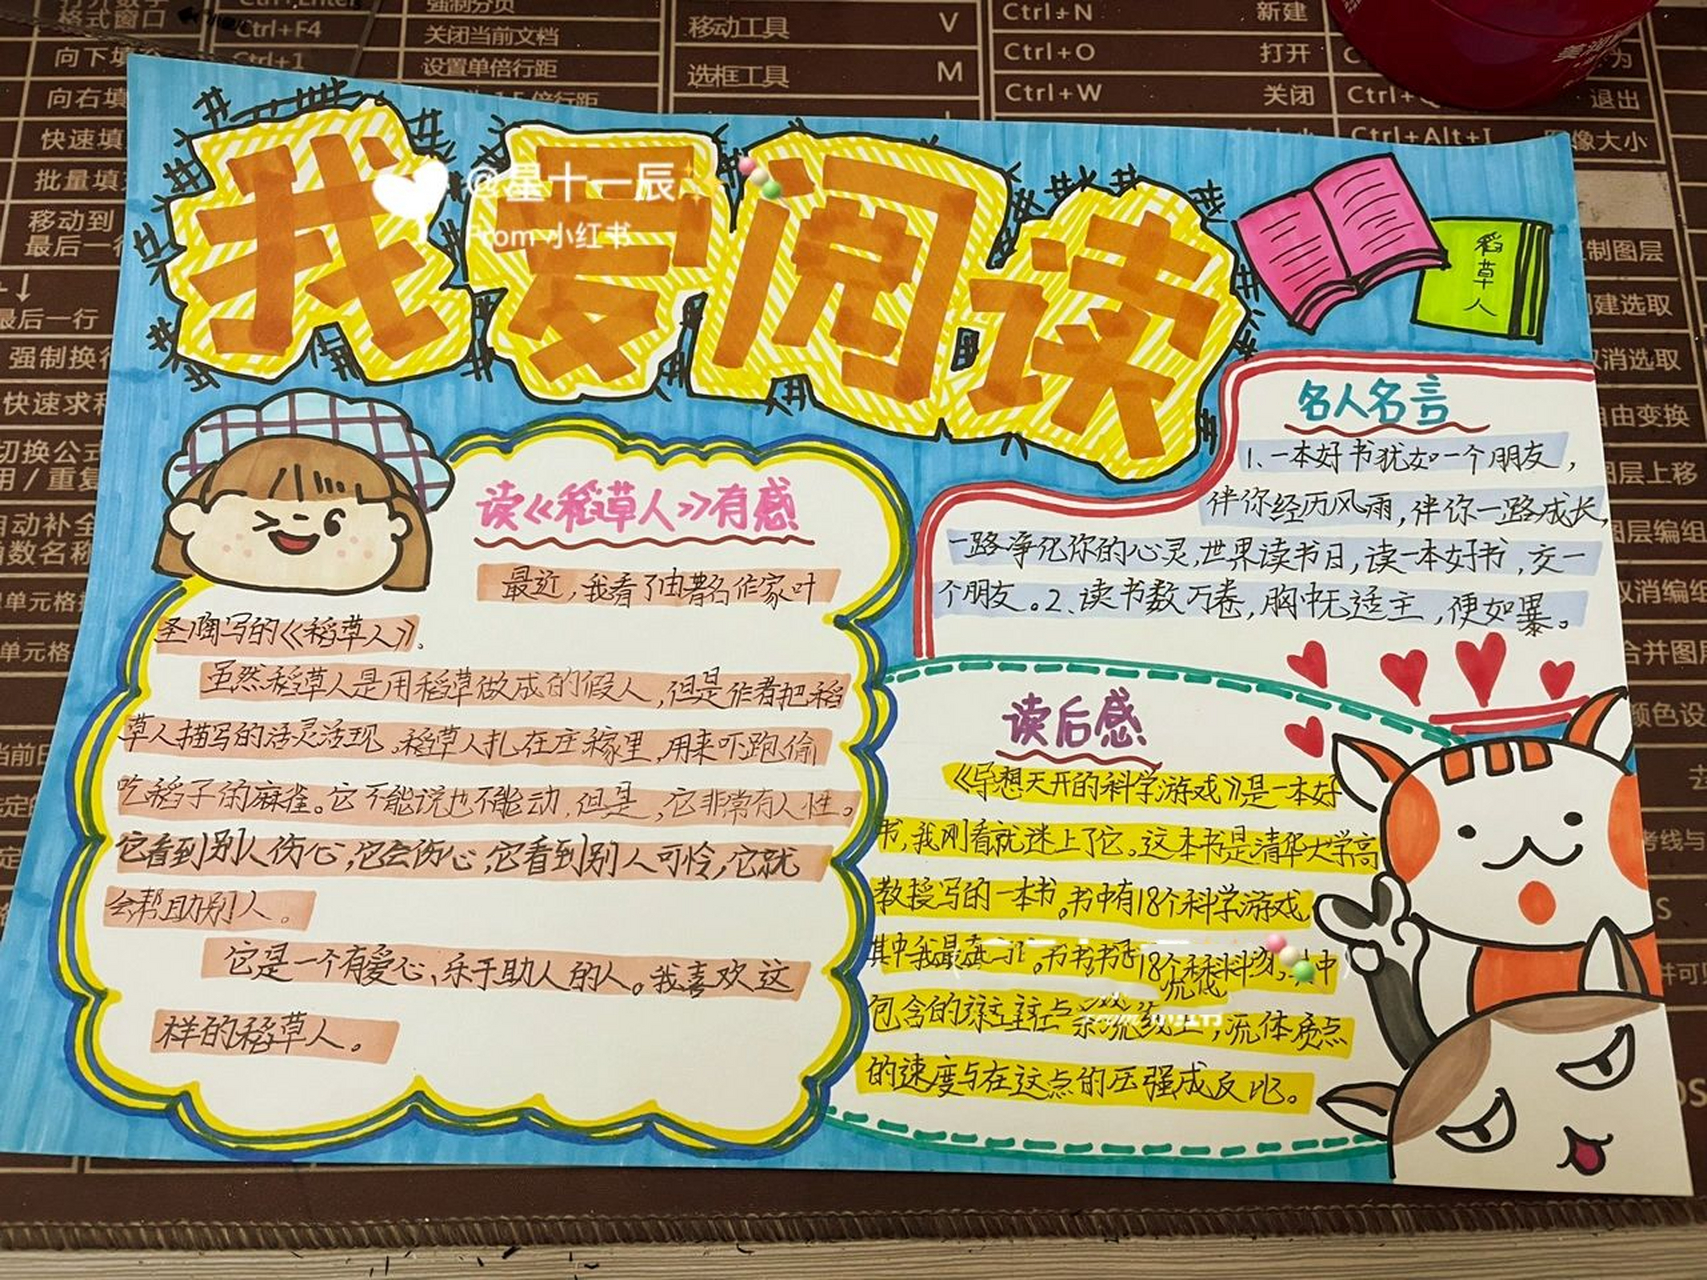 我爱阅读
@星十一辰
From 小红书
稻草人
读《稻草人》有感
最近，我看了由著名作家叶
圣陶写的《稻草人》。
虽然稻草人是用稻草做成的假人，但是作者把稻
草人描写的活灵活现。稻草人扎在庄稼里，用来吓跑偷
吃稻子的麻雀。它不能说也不能动，但是，它非常有人性。
它看到别人伤心，它会伤心，它看到别人可怜，它就
会帮助别人。
它是一个有爱心、乐于助人的人。我喜欢这
样的稻草人。
名人名言
1、一本好书犹如一个朋友，
伴你经历风雨，伴你一路成长，
一路净化你的心灵，世界读书日，读一本好书，交一
个朋友。2、读书数万卷，胸中无适主，便如暴。
读后感
《异想天开的科学游戏》是一本好
书，我刚看就迷上了它。这本书是清华大学高
教授写的一本书。书中有18个科学游戏
其中我最
18个
包含的
，流体质点
的速度与在这点的压强成反比。
移动工具 V
选框工具 M
Ctrl+N 新建
Ctrl+O 打开
Ctrl+W 关闭
退出
Ctrl+Alt+I
Ctrl+F4 关闭当前文档
Ctrl+1 设置单倍行距
格式窗口
强制分页
最后一行